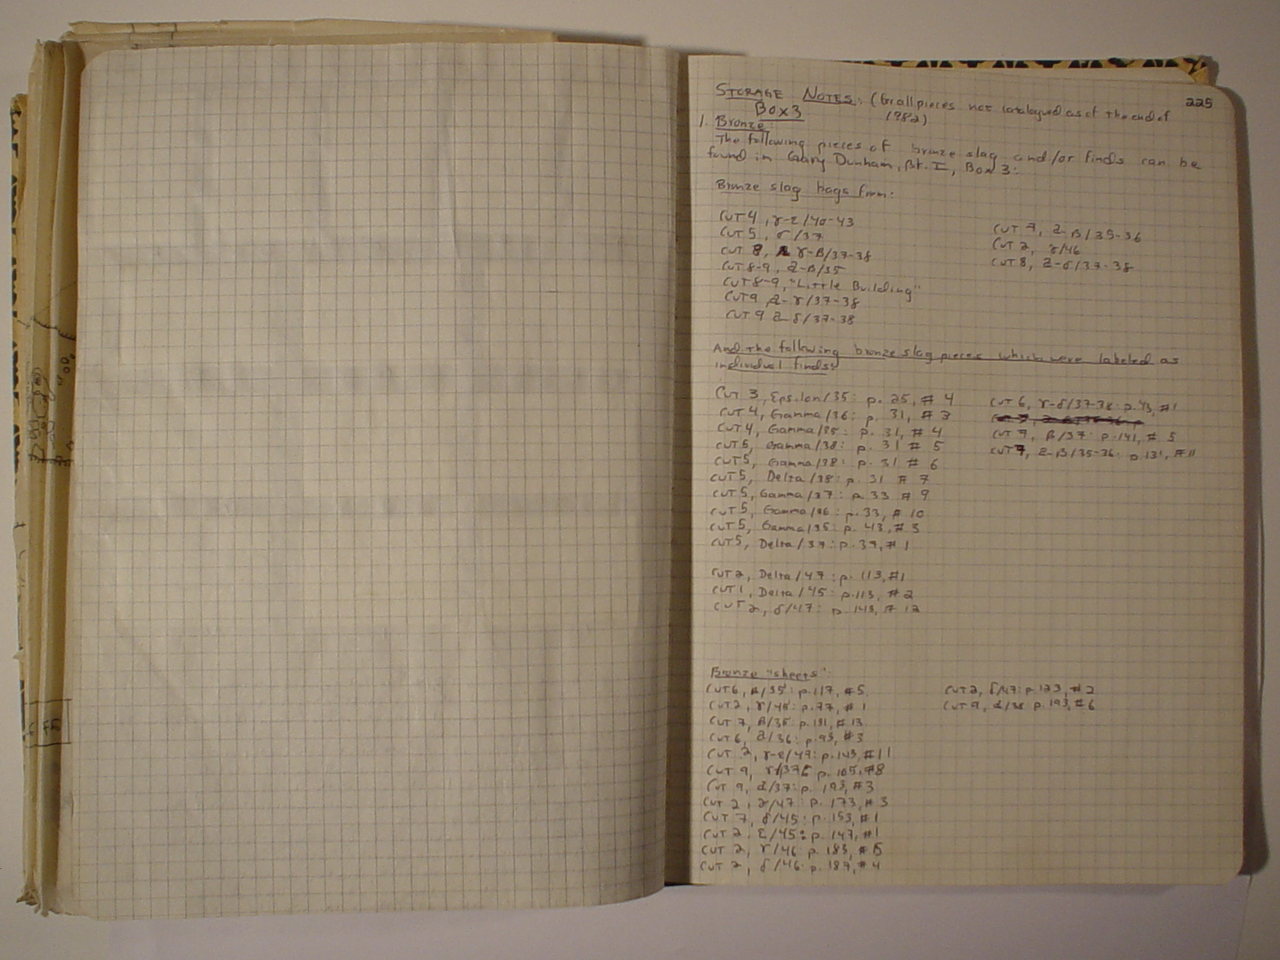 225
STORAGE NOTES: (for all pieces not catalogued as of the end of
Box 3 1982)
1. Bronze:
The following pieces of bronze slag and/or finds can be
found in Gary Dunham, Pt. I, Box 3:
Bronze slag bags from:
CUT 4, γ-ε/40-43
CUT 5, σ/37
CUT 8, γ-β/37-38
CUT 8-9, α-β/35
CUT 8-9, "Little Building"
CUT 9 α-γ/37-38
CUT 9 α-δ/37-38
CUT 9, α-β/35-36
CUT 2, γ/46
CUT 8, α-δ/37-38
And the following bronze slag pieces which were labeled as
individual finds:
CUT 3, Epsilon/35: p. 25, # 4
CUT 4, Gamma/36: p. 31, # 3
CUT 4, Gamma/35: p. 31, # 4
CUT 5, Gamma/38: p. 31 # 5
CUT 5, Gamma/38: p. 31 # 6
CUT 5, Delta/38: p. 31 # 7
CUT 5, Gamma/37: p. 33 # 9
CUT 5, Gamma/36: p. 33, # 10
CUT 5, Gamma/35: p. 43, # 3
CUT 5, Delta/37: p. 37, # 1
CUT 6, γ-δ/37-38: p. 43, #1
CUT 9, β/37: p. 141, # 5
CUT 9, α-β/35-36: p. 131, #11
CUT 2, Delta/47: p. 113, #1
CUT 1, Delta/45: p. 113, # 2
CUT 2, δ/47: p. 143, # 12
Bronze "sheets":
CUT 6, β/35: p. 117, #5
CUT 2, γ/48: p. 77, # 1
CUT 7, β/35: p. 131, # 13
CUT 6, α/36: p. 93, # 3
CUT 2, γ-ε/47: p. 143, #11
CUT 9, p. 105, #8
CUT 9, α/37: p. 193, #3
CUT 2, γ/47: p. 173, # 3
CUT 7, δ/45: p. 153, #1
CUT 2, Σ/45: p. 147, #1
CUT 2, γ/46: p. 183, # 5
CUT 2, δ/46: p. 187, # 4
CUT 2, δ/47: p. 123, # 2
CUT 9, α/38: p. 193, # 6